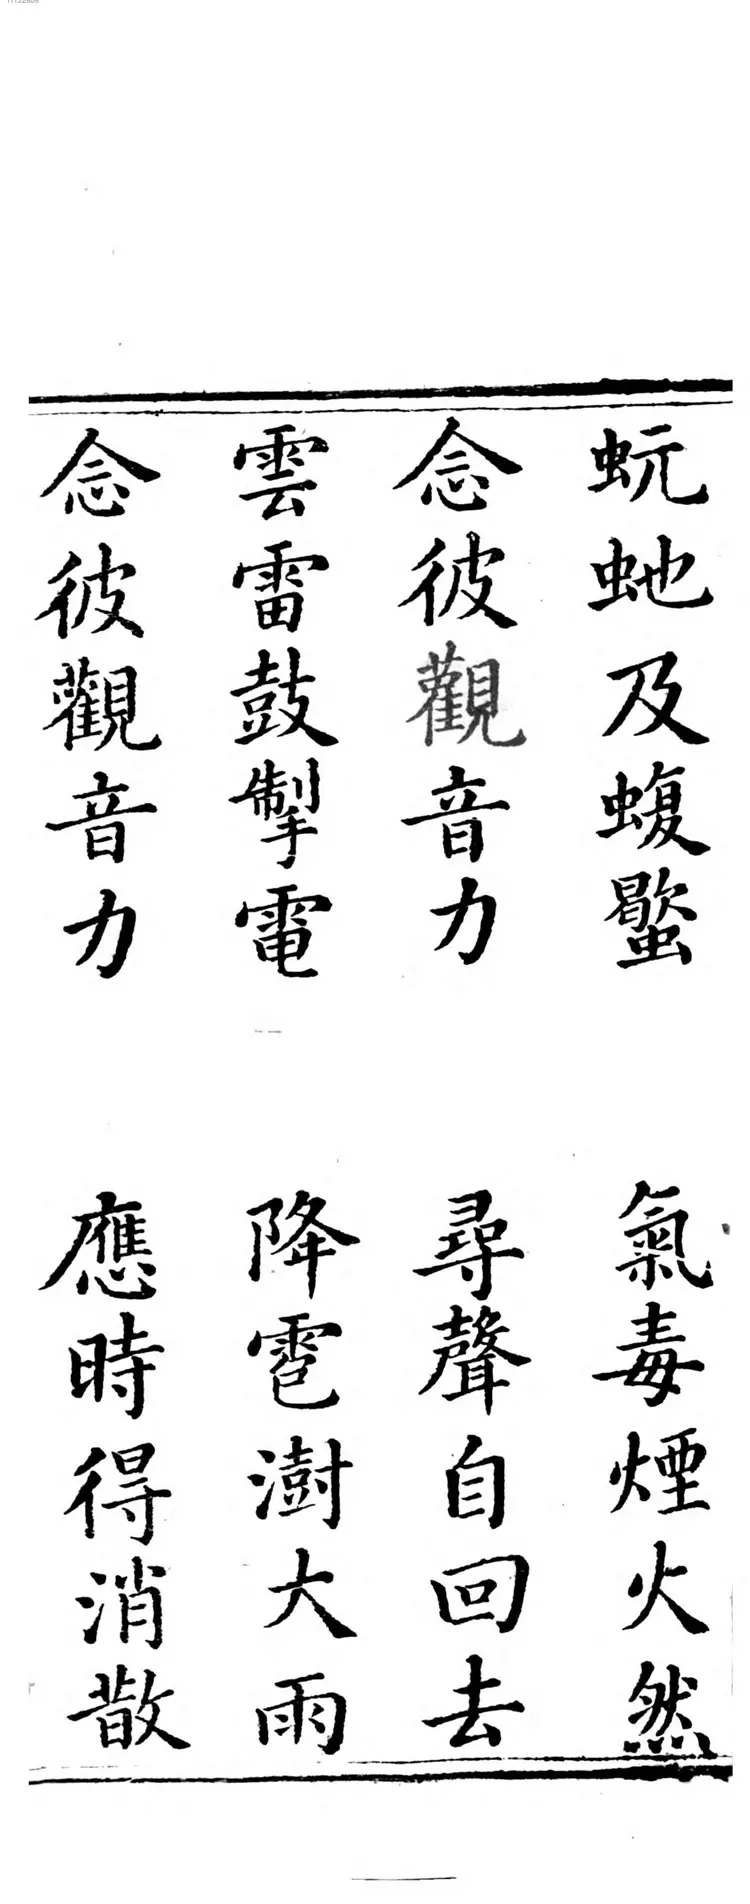 蚖虵及蝮蠚 氣毒煙火然
念彼觀音力 尋聲自回去
雲雷鼓掣電 降雹澍大雨
念彼觀音力 應時得消散